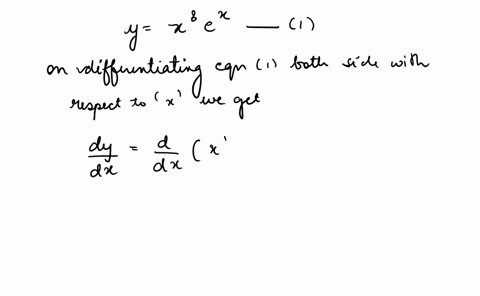 y = x⁸ eˣ —— (1)
on differentiating eqn (1) both side with
respect to 'x' we get
dy/dx = d/dx ( x'